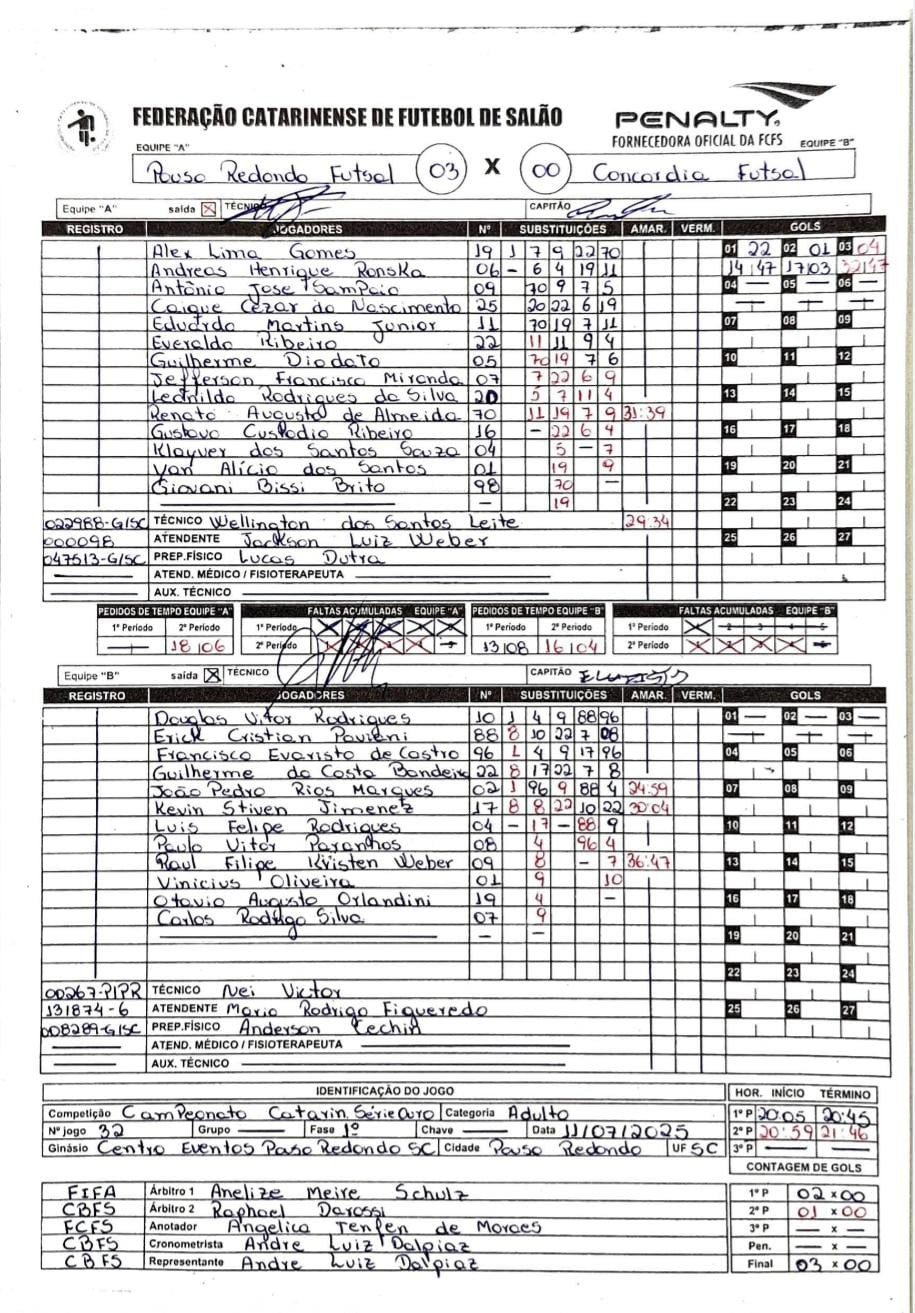 FEDERAÇÃO CATARINENSE DE FUTEBOL DE SALÃO
PENALTY
FORNECEDORA OFICIAL DA FCFS
EQUIPE "A" EQUIPE "B"
Pouso Redondo Futsal 03 X 00 Concordia Futsal
Equipe "A" saída X TÉCNICO CAPITÃO
REGISTRO JOGADORES Nº SUBSTITUIÇÕES AMAR. VERM. GOLS
Alex Lima Gomes 19 1 7 9 22 70 01 22 02 01 03 04
Andreas Henrique Ronska 06 - 6 4 19 11 14:47 17:03 32:47
Antônio Jose Sampaio 09 70 9 7 5 04 — 05 — 06 —
Caique Cézar do Nascimento 25 20 22 6 19
Eduardo Martins Junior 11 70 19 7 11 07 08 09
Everaldo Ribeiro 22 11 11 9 4
Guilherme Diodato 05 70 19 7 6 10 11 12
Jefferson Francisco Miranda 07 7 22 6 9
Leonildo Rodrigues da Silva 20 5 7 11 4 13 14 15
Renato Augusto de Almeida 70 11 19 7 9 31:39
Gustavo Custodio Ribeiro 16 - 22 6 4 16 17 18
Klayver dos Santos Souza 04 5 - 7
Yan Alício dos Santos 01 19 9 19 20 21
Giovani Bissi Brito 98 70 -
— 19 22 23 24
022988-G/SC TÉCNICO Wellington dos Santos Leite 29:34
000098 ATENDENTE Jackson Luiz Weber 25 26 27
047513-G/SC PREP.FÍSICO Lucas Dutra
ATEND. MÉDICO / FISIOTERAPEUTA
AUX. TÉCNICO
PEDIDOS DE TEMPO EQUIPE "A" FALTAS ACUMULADAS EQUIPE "A" PEDIDOS DE TEMPO EQUIPE "B" FALTAS ACUMULADAS EQUIPE "B"
1º Período 2º Período 1º Período 1º Período 2º Período 1º Período
— 18:06 2º Período 13:08 16:04 2º Período
Equipe "B" saída X TÉCNICO CAPITÃO
REGISTRO JOGADORES Nº SUBSTITUIÇÕES AMAR. VERM. GOLS
Douglas Vitor Rodrigues 10 1 4 9 88 96 01 — 02 — 03 —
Erick Cristian Paviani 88 8 10 22 7 08
Francisco Evaristo de Castro 96 1 4 9 17 96 04 05 06
Guilherme da Costa Bandeira 22 8 17 22 7 8
João Pedro Rios Marques 02 1 96 9 88 4 24:59 07 08 09
Kevin Stiven Jimenez 17 8 8 22 10 22 30:04
Luis Felipe Rodrigues 04 - 17 - 88 9 10 11 12
Paulo Vitor Paranhos 08 4 96 4
Raul Filipe Kristen Weber 09 8 - 7 36:47 13 14 15
Vinicius Oliveira 01 9 10
Otavio Augusto Orlandini 19 4 - 16 17 18
Carlos Rodrigo Silva 07 9
— - 19 20 21
22 23 24
00267-P/PR TÉCNICO Nei Victor
131874-6 ATENDENTE Mario Rodrigo Figueredo 25 26 27
008289-G/SC PREP.FÍSICO Anderson Techin
ATEND. MÉDICO / FISIOTERAPEUTA
AUX. TÉCNICO
IDENTIFICAÇÃO DO JOGO HOR. INÍCIO TÉRMINO
Competição Campeonato Catarin. Série Ouro Categoria Adulto 1º P 20:05 20:45
Nº jogo 32 Grupo — Fase 1º Chave — Data 11/07/2025 2º P 20:59 21:46
Ginásio Centro Eventos Pouso Redondo SC Cidade Pouso Redondo UF SC 3º P — —
CONTAGEM DE GOLS
FIFA Árbitro 1 Anelize Meire Schulz 1º P 02 x 00
CBFS Árbitro 2 Raphael Darossi 2º P 01 x 00
FCFS Anotador Angelica Tenfen de Moraes 3º P — x —
CBFS Cronometrista Andre Luiz Dalpiaz Pen. — x —
CBFS Representante Andre Luiz Dalpiaz Final 03 x 00